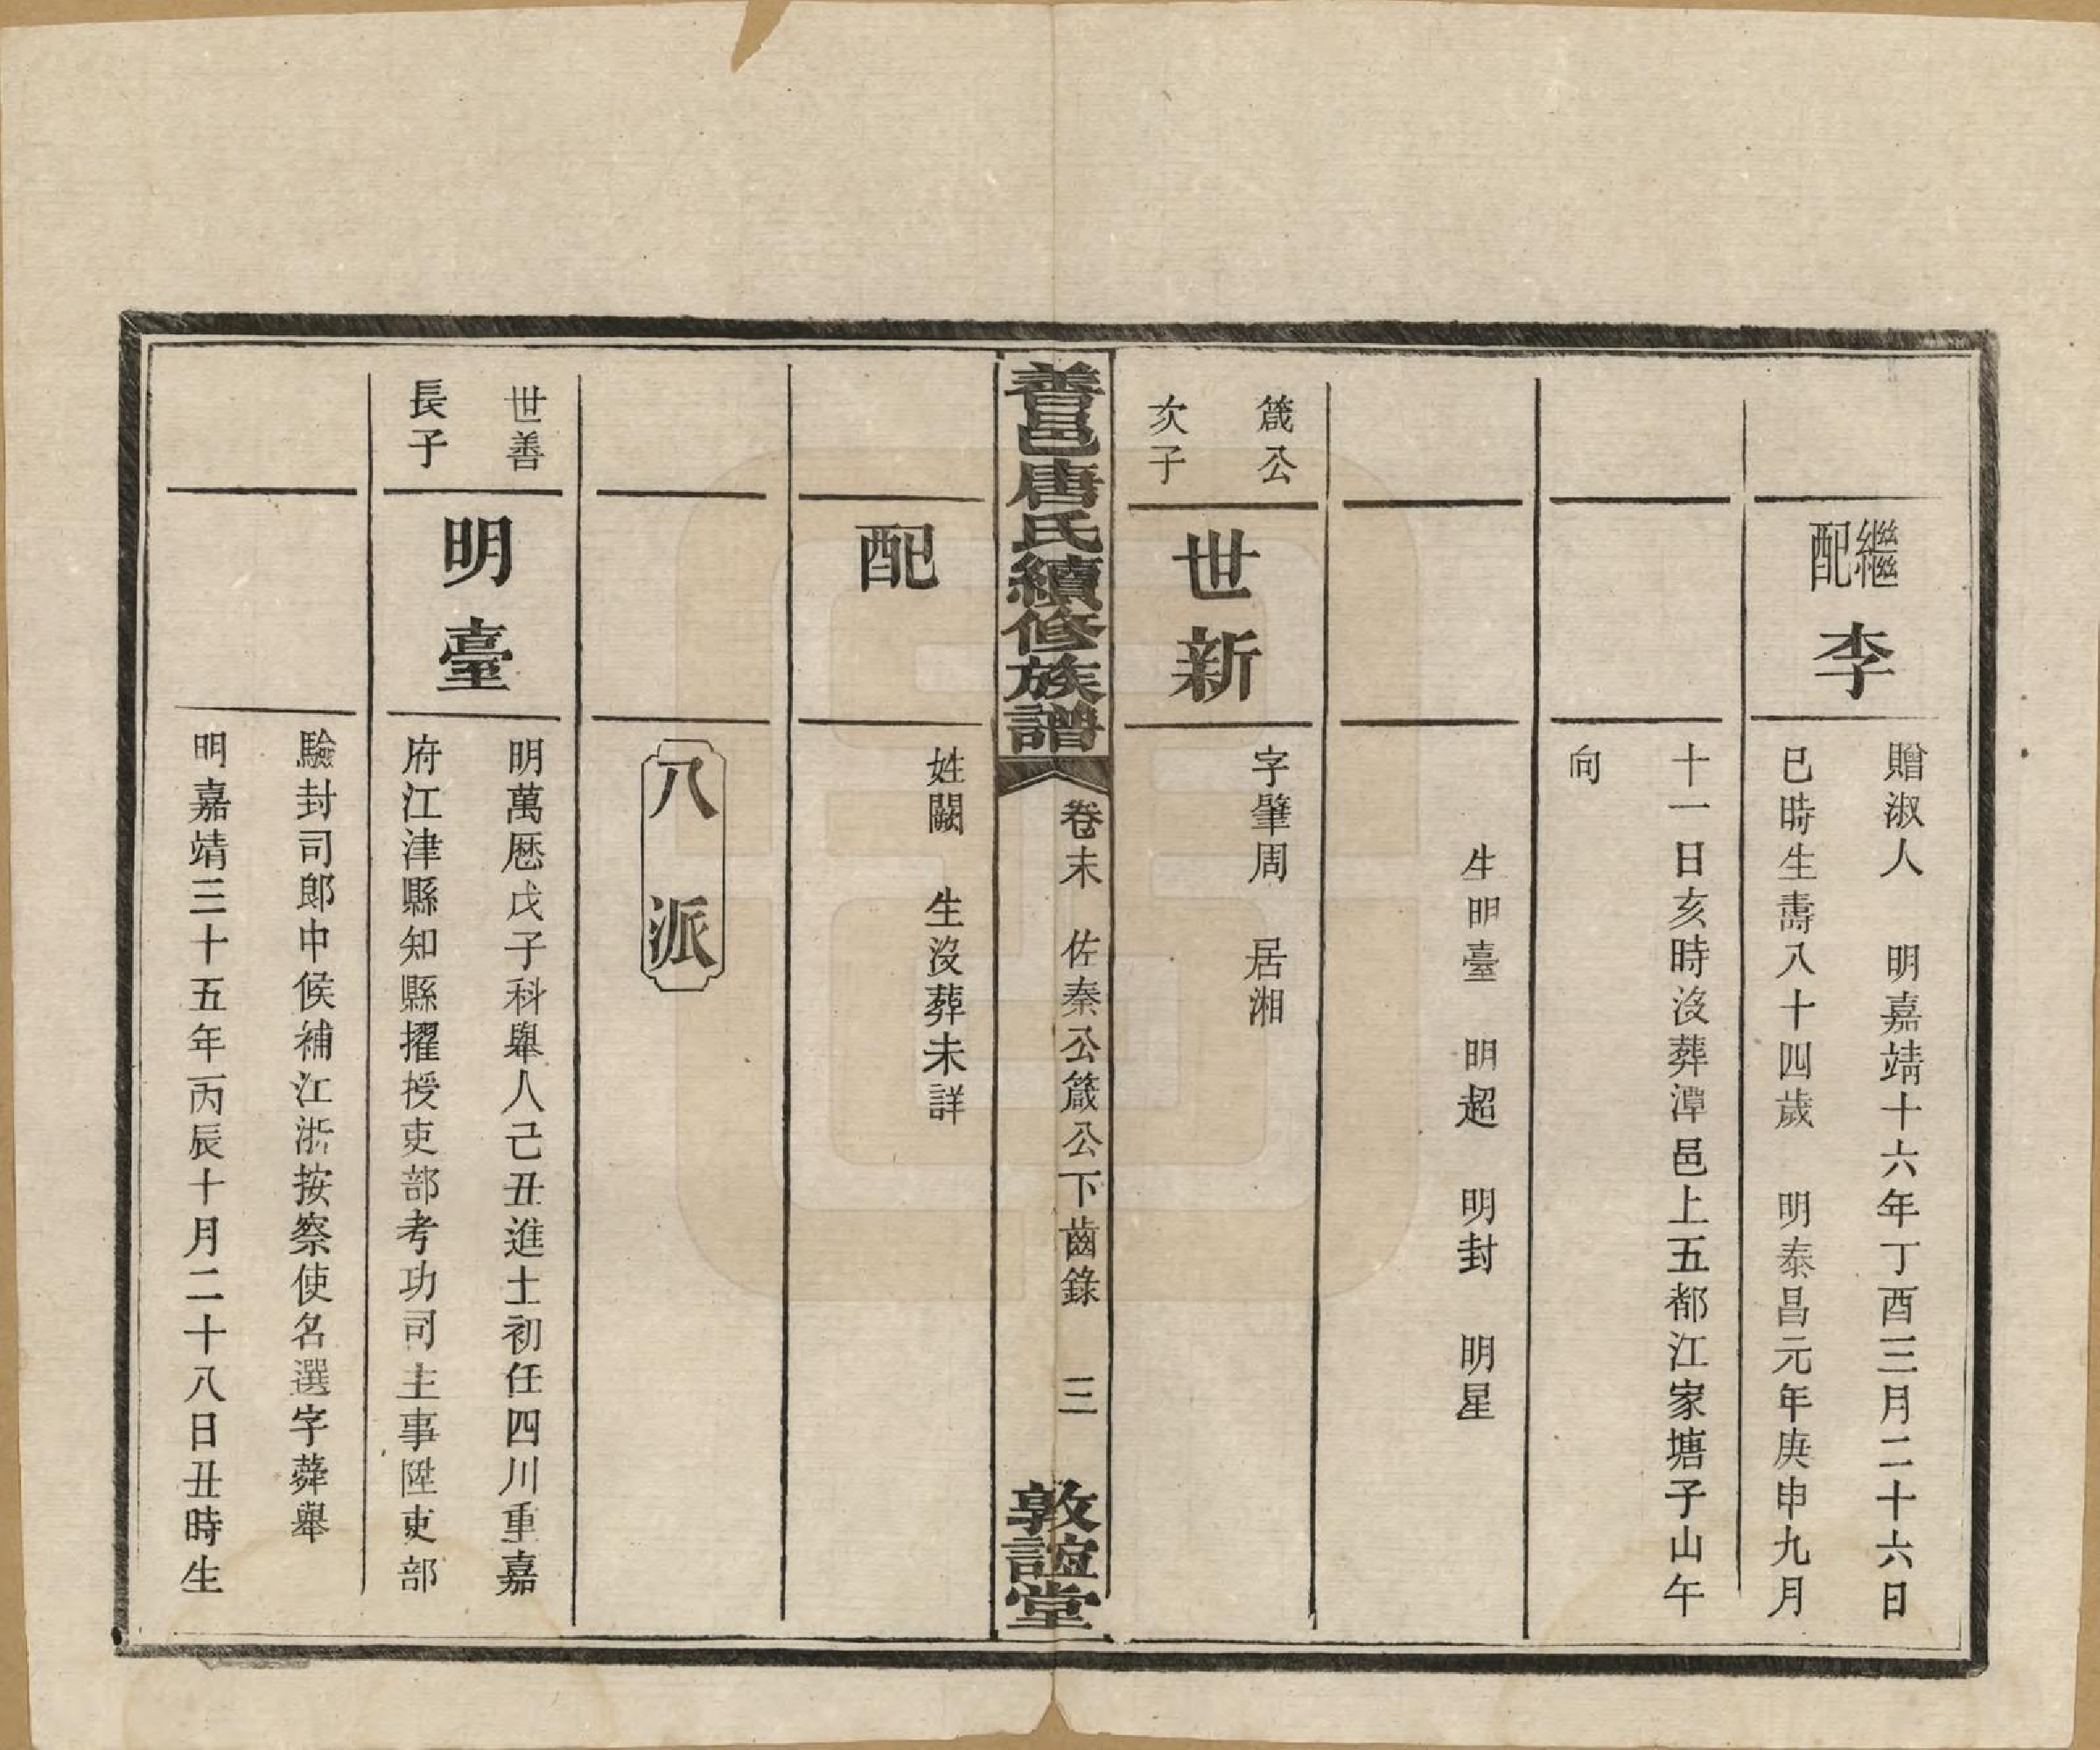 繼配
李
贈淑人　明嘉靖十六年丁酉三月二十六日
巳時生壽八十四歲　明泰昌元年庚申九月
十一日亥時沒葬潭邑上五都江家塘子山午
向
生明臺　明超　明封　明星
箴公
次子
世新
字肇周　居湘
善邑唐氏續修族譜
卷末　佐秦公箴公下齒錄　三
敦誼堂
配
姓闕　生沒葬未詳
八派
世善
長子
明臺
明萬厯戊子科舉人己丑進士初任四川重嘉
府江津縣知縣擢授吏部考功司主事陞吏部
驗封司郎中候補江浙按察使名選字葬舉
明嘉靖三十五年丙辰十月二十八日丑時生